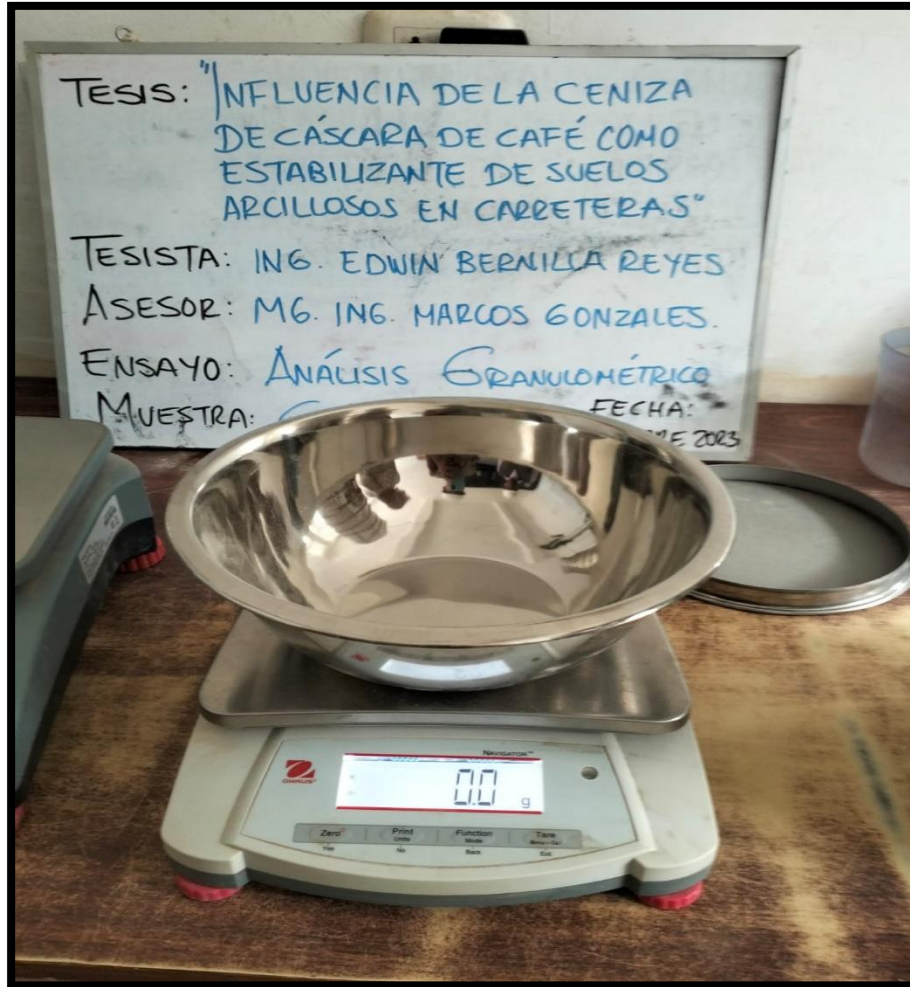 TESIS: "INFLUENCIA DE LA CENIZA
DE CÁSCARA DE CAFÉ COMO
ESTABILIZANTE DE SUELOS
ARCILLOSOS EN CARRETERAS"
TESISTA: ING. EDWIN BERNILLA REYES
ASESOR: MG. ING. MARCOS GONZALES.
ENSAYO: ANÁLISIS GRANULOMÉTRICO
MUESTRA: FECHA:
2023
NAVIGATOR™
OHAUS
0.0 g
Zero Print Function Tare
Yes Units Mode Menu-Cal
No Back Exit